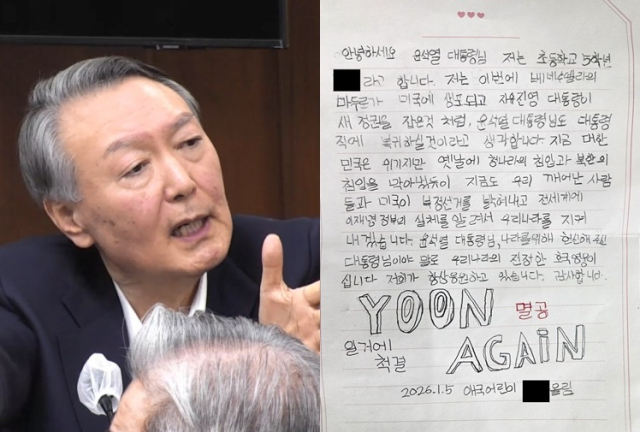 안녕하세요 윤석열 대통령님 저는 초등학교 5학년
라고 합니다. 저는 이번에 베네수엘라의
마두로가 미국에 생포되고 자유진영 대통령이
새 정권을 잡은것 처럼, 윤석열 대통령님도 대통령
직에 복귀하실것이라고 생각합니다. 지금 대한
민국은 위기지만 옛날에 청나라의 침입과 북한의
침입을 막아왔듯이 지금도 우리 깨어난 사람
들과 미국이 부정선거를 밝혀내고 전세계에
이재명 정부의 실체를 알려서 우리나라를 지켜
내겠습니다. 윤석열 대통령님, 나라를위해 헌신해 온
대통령님이야 말로 우리나라의 진정한 호국영웅이
십니다 저희가 항상응원하고 있습니다. 감사합니다.
YOON 멸공
일거에 척결 AGAIN
2026.1.5 애국어린이 올림